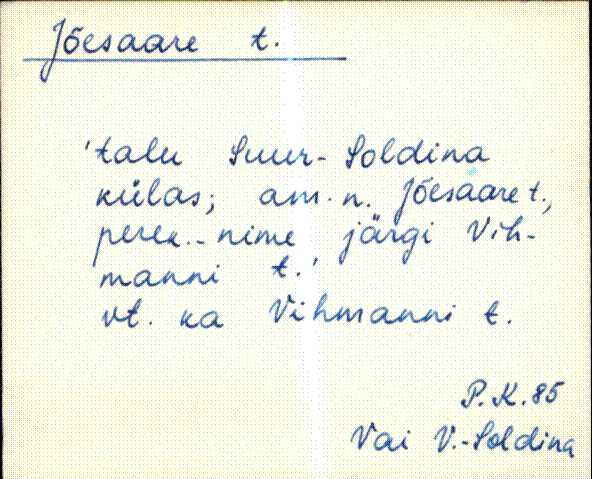 Jõesaare t.
'talu Suur-Soldina
külas; am. n. Jõesaare t.,
perek.-nime järgi Vih-
manni t.'
vt. ka Vihmanni t.
P.K.85
Vai V.-Soldina